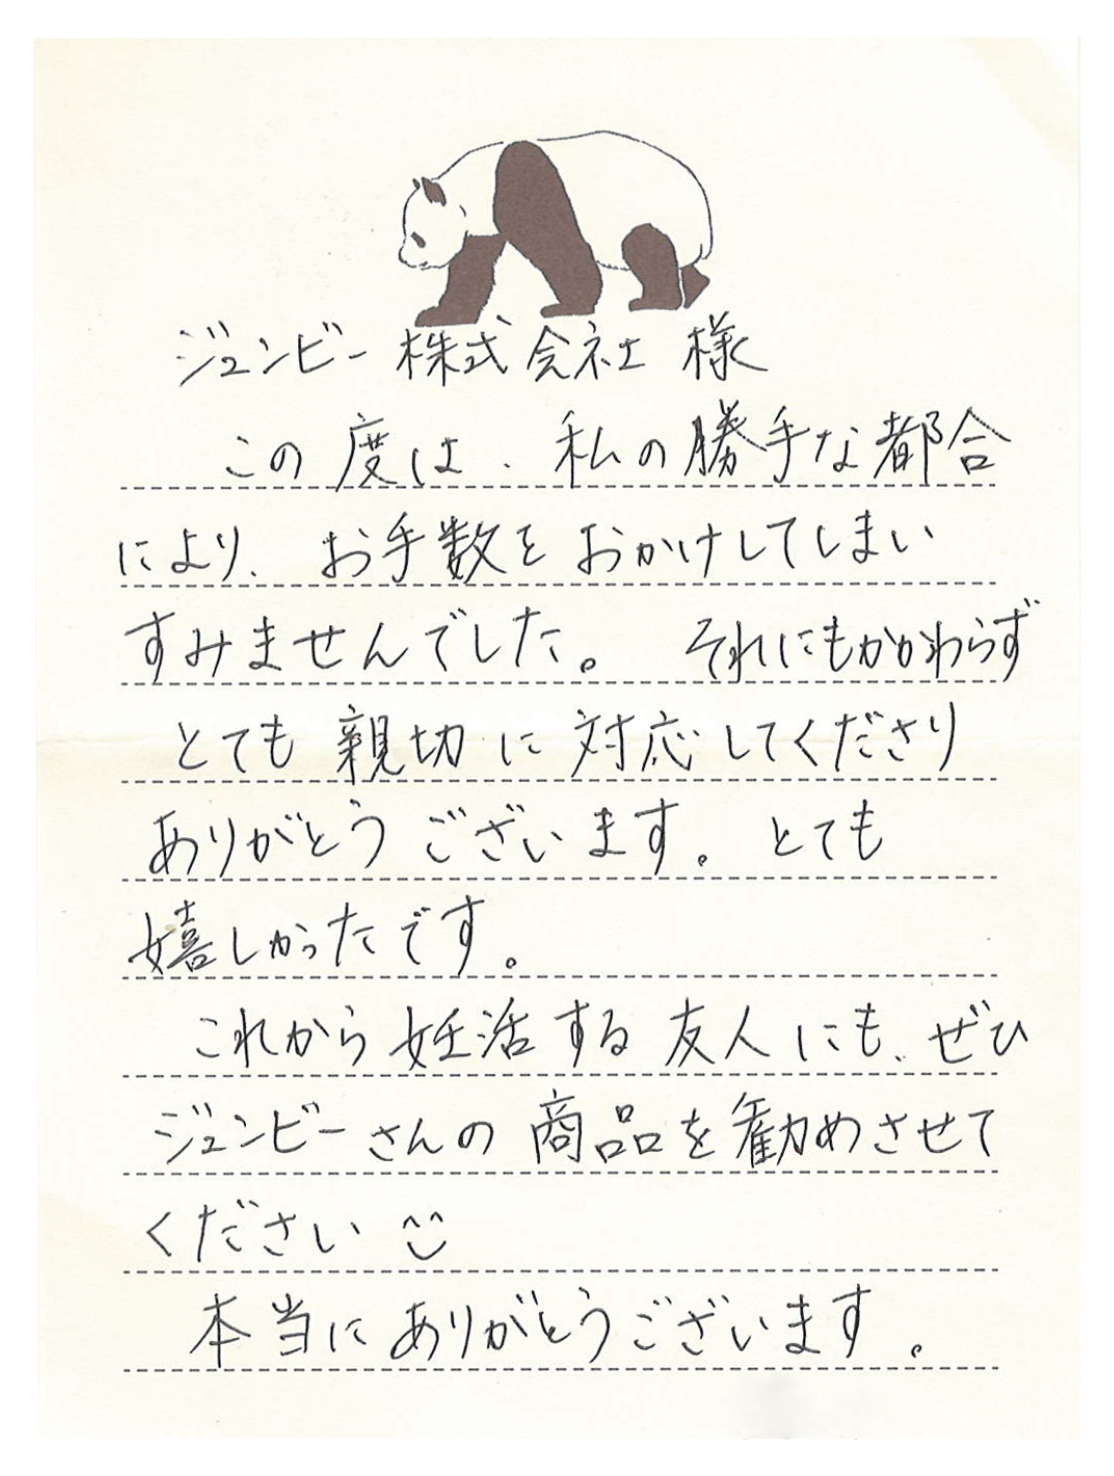 ジュンビー株式会社 様
この度は、私の勝手な都合
により、お手数をおかけしてしまい
すみませんでした。 それにもかかわらず
とても親切に対応してくださり
ありがとうございます。とても
嬉しかったです。
これから妊活する友人にも、ぜひ
ジュンビーさんの商品を勧めさせて
ください
本当にありがとうございます。